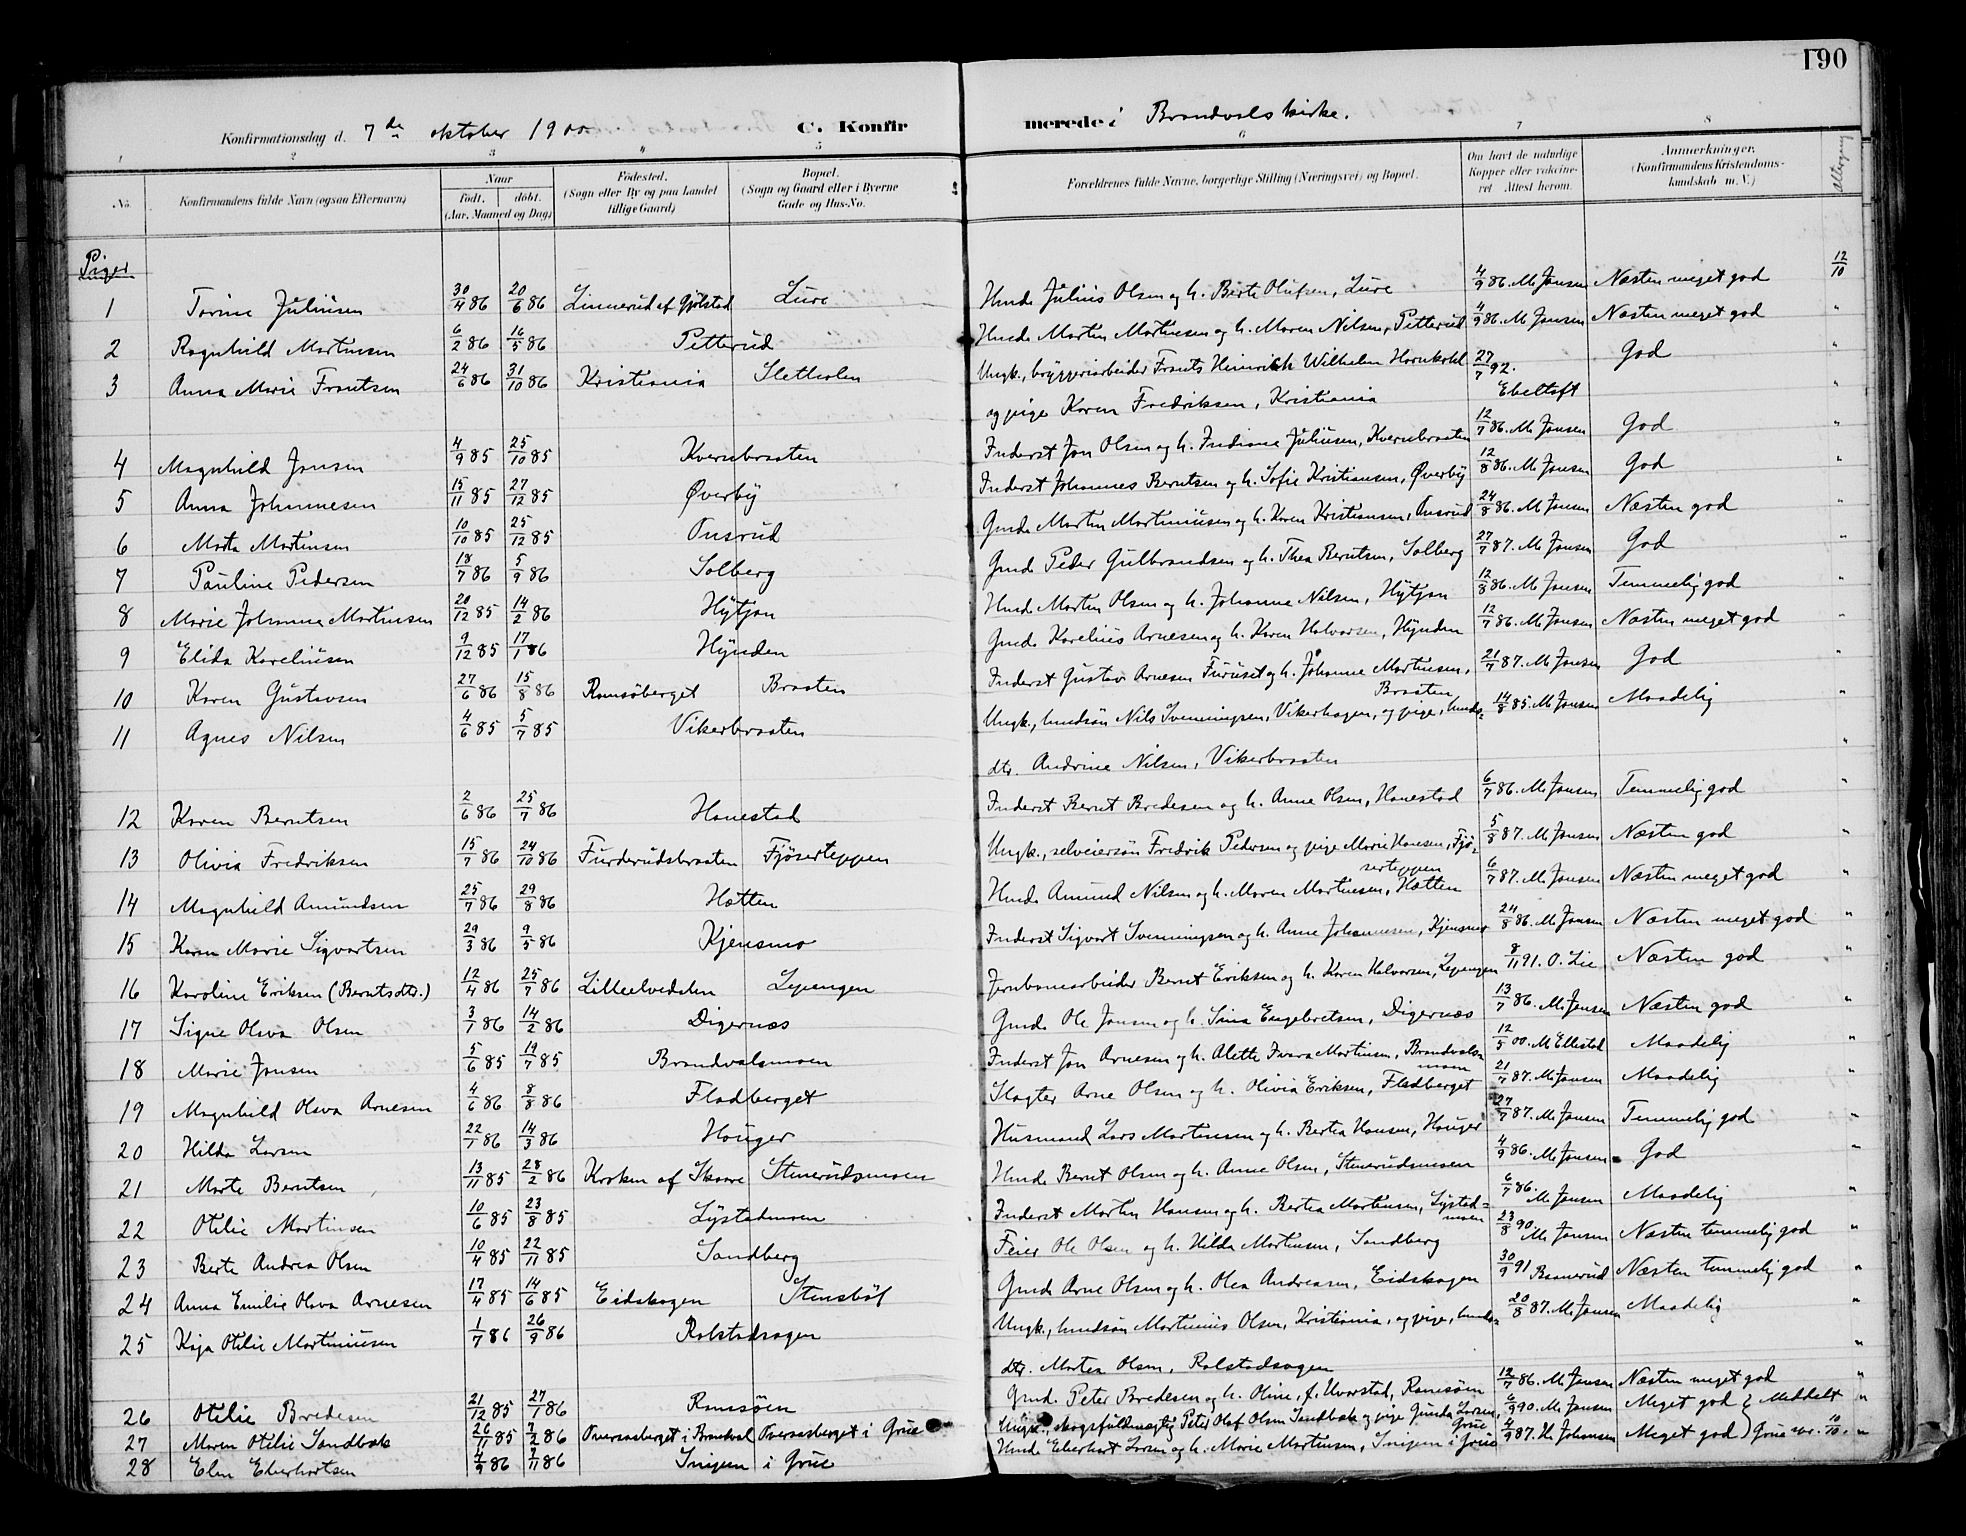 190
Konfirmationsdag d. 7de oktober 1900 C. Konfirmerede i Brandvals kirke.
1 2 3 4 5 6 7 8
No. Konfirmandens fulde Navn (ogsaa Efternavn) Naar født. døbt. (Aar, Maaned og Dag) Fødested. (Sogn eller By og paa Landet tillige Gaard) Bopæl. (Sogn og Gaard eller i Byerne Gade og Hus-No. Forældrenes fulde Navne, borgerlige Stilling (Næringsvei) og Bopæl. Om havt de naturlige Kopper eller vaccineret Attest herom. Anmærkninger. (Konfirmandens Kristendomskundskab m. V.) Altergang
Piger
1 Torine Juliusen 30/4 86 20/6 86 Linnerud af Gjølstad Lure Hmd. Julius Olsen og h. Berte Olufsen, Lure 4/9 86. M. Jansen Næsten meget god 12/10
2 Ragnhild Martinsen 6/2 86 16/5 86 Petterud Hmd. Martin Martinsen og h. Maren Nilsen, Petterud 4/9 86. M. Jansen Næsten meget god "
3 Anna Marie Frantsen 24/6 86 31/10 86 Kristiania Sletholen Ungk., bryggeriarbeider Frants Heinrich Wilhelm Hornkohl 27/7 92. God "
og pige Karen Fredriksen, Kristiania Ebeltoft "
4 Magnhild Jansen 4/9 85 25/10 85 Kvernbraaten Inderst Jon Olsen og h. Indiane Juliusen, Kvernbraaten 12/7 86. M. Jansen God "
5 Anna Johannesen 15/11 85 27/12 85 Øverby Inderst Johannes Berntsen og h. Sofie Kristiansen, Øverby 12/8 86. M. Jansen God "
6 Marta Martinsen 10/10 85 25/12 85 Onsrud Gmd. Martin Martiniusen og h. Karen Kristiansen, Onsrud 24/8 86. M. Jansen Næsten god "
7 Pauline Pedersen 18/7 86 5/9 86 Solberg Gmd. Peder Gulbrandsen og h. Thea Berntsen, Solberg 27/7 87. M. Jansen God "
8 Marie Johanna Martinsen 20/12 85 14/2 86 Hytjan Hmd. Martin Olsen og h. Johanne Nilsen, Hytjan 12/8 86. M. Jansen Temmelig god "
9 Elida Kareliusen 9/12 85 17/1 86 Hynden Gmd. Karelius Arnesen og h. Karen Halvorsen, Hynden 12/7 86. M. Jansen Næsten meget god "
10 Karen Gustavsen 27/6 86 15/8 86 Ramsøberget Braaten Inderst Gustav Arnesen Furuset og h. Johanne Martinsen, 21/7 87. M. Jansen God "
Braaten
11 Agnes Nilsen 4/6 85 5/7 85 Vikerbraaten Ungk., hmdsøn Nils Svenningsen, Vikerhagen, og pige, hmds= 14/8 85. M. Jansen Maadelig "
dtr. Andrine Nilsen, Vikerbraaten "
12 Karen Berntsen 2/6 86 25/7 86 Hanestad Inderst Bernt Bredesen og h. Anne Olsen, Hanestad 6/7 86. M. Jansen Temmelig god "
13 Olivia Fredriksen 15/7 86 24/10 86 Furderudsbraaten Fjøserteppen Ungk., selveiersøn Fredrik Pedersen og pige Marie Hansen, Fjø= 5/8 87. M. Jansen Næsten god "
serteppen
14 Magnhild Amundsen 25/7 86 29/8 86 Hatten Hmd. Amund Nilsen og h. Maren Martinsen, Hatten 6/7 87. M. Jansen Næsten meget god "
15 Karen Marie Sigvartsen 29/3 86 9/5 86 Kjensmo Inderst Sigvart Svenningsen og h. Anne Johannesen, Kjensmo 24/8 86. M. Jansen Næsten meget god "
16 Karoline Eriksen (Berntsdtr.) 12/4 86 25/7 86 Lilleelvedalen Lepengen Jernbanearbeider Bernt Eriksen og h. Karen Halvorsen, Lepengen 8/11 91. O. Lie Næsten god "
17 Signe Olava Olsen 3/1 86 14/2 86 Digernæs Gmd. Ole Jansen og h. Sina Engebretsen, Digernæs 13/7 86. M. Jansen Næsten god "
18 Marie Jansen 5/6 85 19/7 85 Brandvalsmoen Inderst Jon Arnesen og h. Alette Ivara Martinsen, Brandvals= 12/5 00. M. Ellestad Maadelig "
moen
19 Magnhild Olava Arnesen 4/6 86 8/8 86 Fladberget Slagter Arne Olsen og h. Olivia Eriksen, Fladberget 21/7 87. M. Jansen Maadelig "
20 Hilda Larsen 22/1 86 14/3 86 Houger Husmand Lars Martinsen og h. Bertea Hansen, Houger 27/7 87. M. Jansen Temmelig god "
21 Marte Berntsen 13/11 85 28/2 86 Kroken af Skaare Stenerudsmoen Hmd. Bernt Olsen og h. Anne Olsen, Stenerudsmoen 4/9 86. M. Jansen God "
22 Otilie Martinsen 10/6 85 23/8 85 Lystadmoen Inderst Martin Hansen og h. Bertea Martinsen, Lystad= 6/7 86. M. Jansen Maadelig "
moen
23 Berte Andrea Olsen 10/4 85 22/11 85 Sandberg Feier Ole Olsen og h. Hilda Martinsen, Sandberg 23/8 90 M. Jansen Næsten temmelig god "
24 Anna Emilie Olava Arnesen 17/4 85 14/6 85 Eidskogen Stensbøl Gmd. Arne Olsen og h. Olea Andreasen, Eidskogen 30/9 91 Baanerud Næsten temmelig god "
25 Kaja Otilie Martiniusen 1/7 86 26/9 86 Rolstadsagen Ungk., hmdsøn Martinius Olsen, Kristiania, og pige, hmds= 20/8 87. M. Jansen Maadelig "
dtr. Martea Olsen, Rolstadsagen "
26 Otilie Bredesen 21/12 85 27/1 86 Ramsøen Gmd. Peter Bredesen og h. Oline, f. Uvarstad, Ramsøen 12/7 86. M. Jansen Næsten meget god "
27 Maren Otilie Sandbæk 26/11 85 7/2 86 Overaasberget i Brandval Overaasberget i Grue Ungk., skogsfuldmægtig Peter Olaf Olsen Sandbæk og pige Gunda Larsen, Grue 6/9 90. M. Jansen Meget god } Meddelt "
28 Elen Eberhartsen 4/9 86 7/11 86 Snigen i Grue Hmd. Eberhart Larsen og h. Marie Martinsen, Snigen i Grue 4/9 87. H. Johansen Meget god } Grue 10/10. "